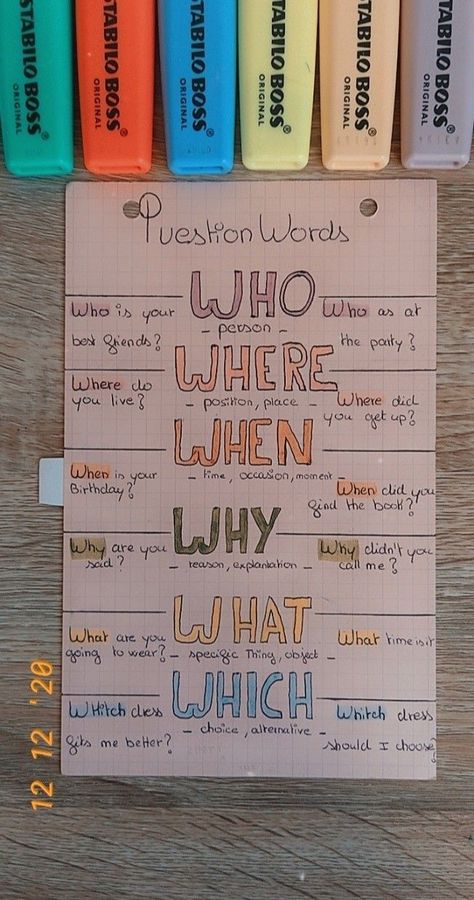 STABILO BOSS®
ORIGINAL
STABILO BOSS®
ORIGINAL
STABILO BOSS®
ORIGINAL
STABILO BOSS®
ORIGINAL
STABILO BOSS®
ORIGINAL
STABILO BOSS®
ORIGINAL
Question Words
WHO
- person -
Who is your
best friends?
Who as at
the party?
WHERE
- position, place -
Where do
you live?
Where did
you get up?
WHEN
- time, occasion, moment -
When is your
Birthday?
When did you
find the book?
WHY
- reason, explantation -
Why are you
sad?
Why didn't you
call me?
WHAT
- specific Thing, object -
What are you
going to wear?
What time is it
WHICH
- choice, alternative -
WHitch dress
fits me better?
Whitch dress
should I choose?
12 12 '20